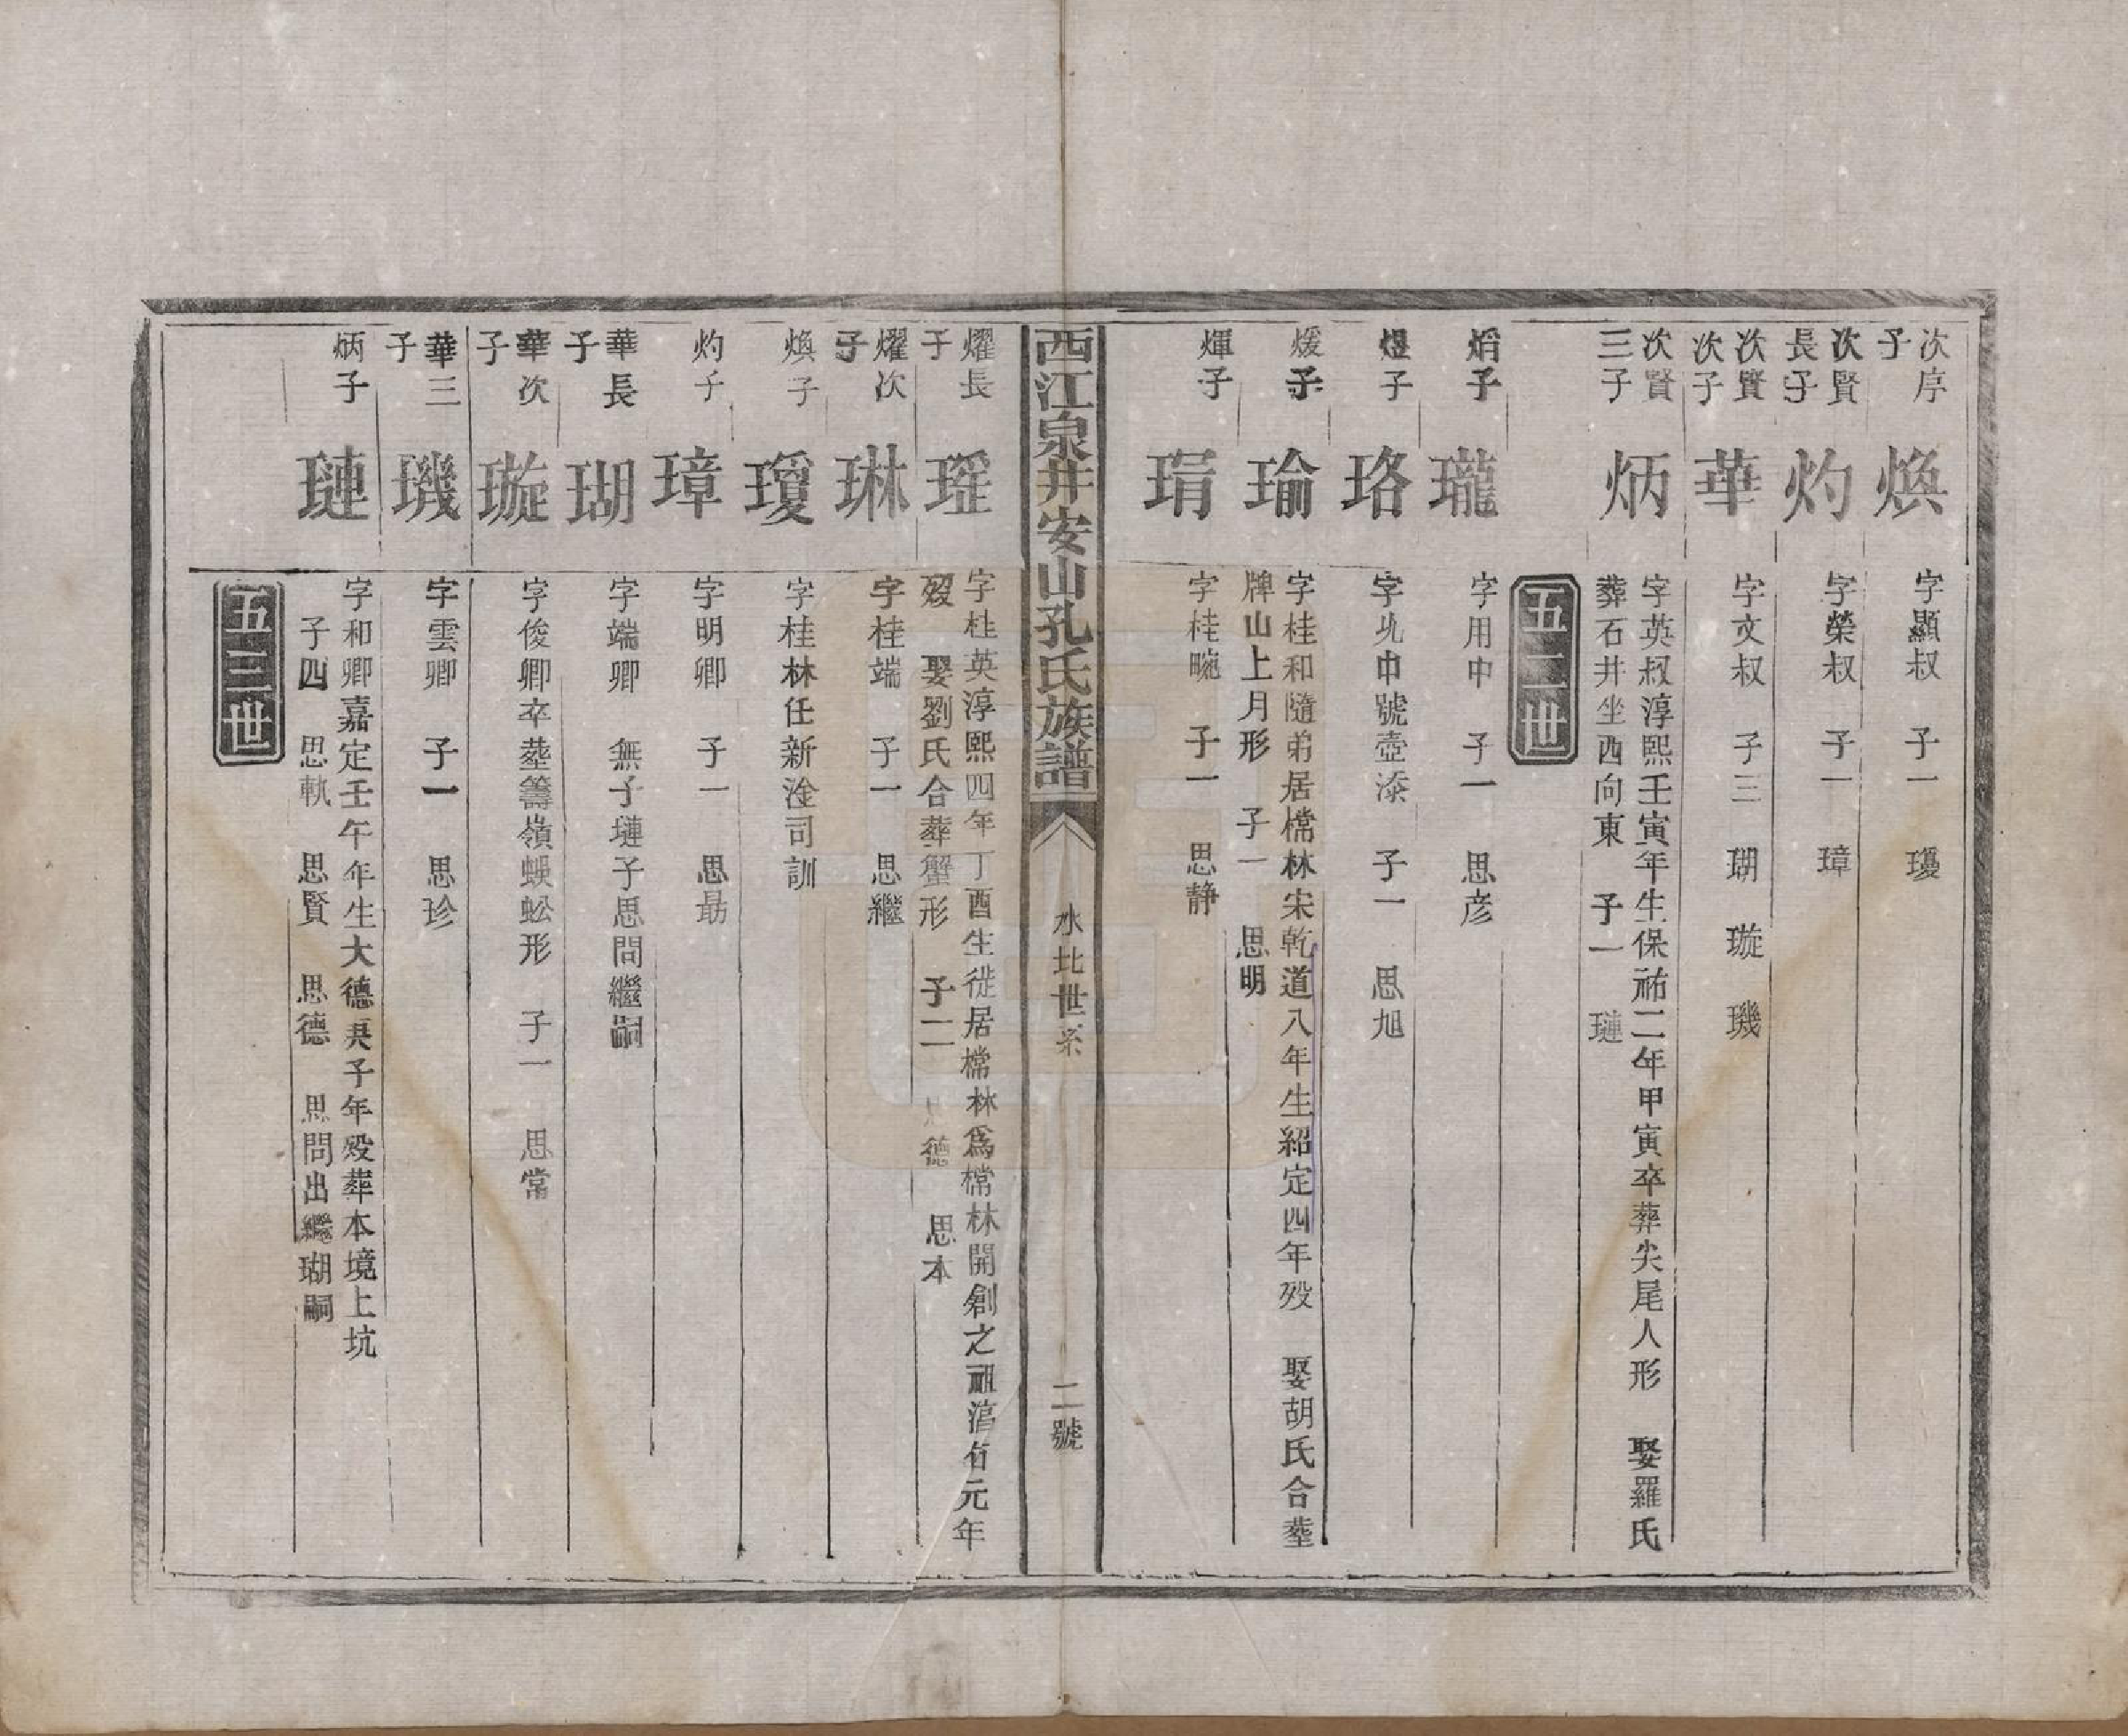 次序子
煥
字顯叔　子一　瓊
次賢長子
灼
字榮叔　子一　璋
次賢次子
華
字文叔　子三　瑚　璇　璣
次賢三子
炳
字英叔淳熙壬寅年生保祐二年甲寅卒葬尖尾人形　娶羅氏
葬石井坐西向東　子一　璉
五二世
焆子
瓏
字用中　子一　思彦
煜子
珞
字允中號壺添　子一　思旭
煖子
瑜
字桂和隨弟居檔林宋乾道八年生紹定四年歿　娶胡氏合塟
牌山上月形　子一　思明
煇子
琄
字桂畹　子一　思静
西江泉井安山孔氏族譜
水北世系
二號
燿長子
瑶
字桂英淳熙四年丁酉生徙居檔林爲檔林開創之祖淳佑元年
歿　娶劉氏合葬蟹形　子二　思德　思本
燿次子
琳
字桂端　子一　思繼
煥子
瓊
字桂林任新淦司訓
灼子
璋
字明卿　子一　思勗
華長子
瑚
字端卿　無子璉子思問繼嗣
華次子
璇
字俊卿卒塟籌嶺蜈蚣形　子一　思常
華三子
璣
字雲卿　子一　思珍
炳子
璉
字和卿嘉定壬午年生大德庚子年歿葬本境上坑
子四　思軌　思賢　思德　思問出繼瑚嗣
五三世